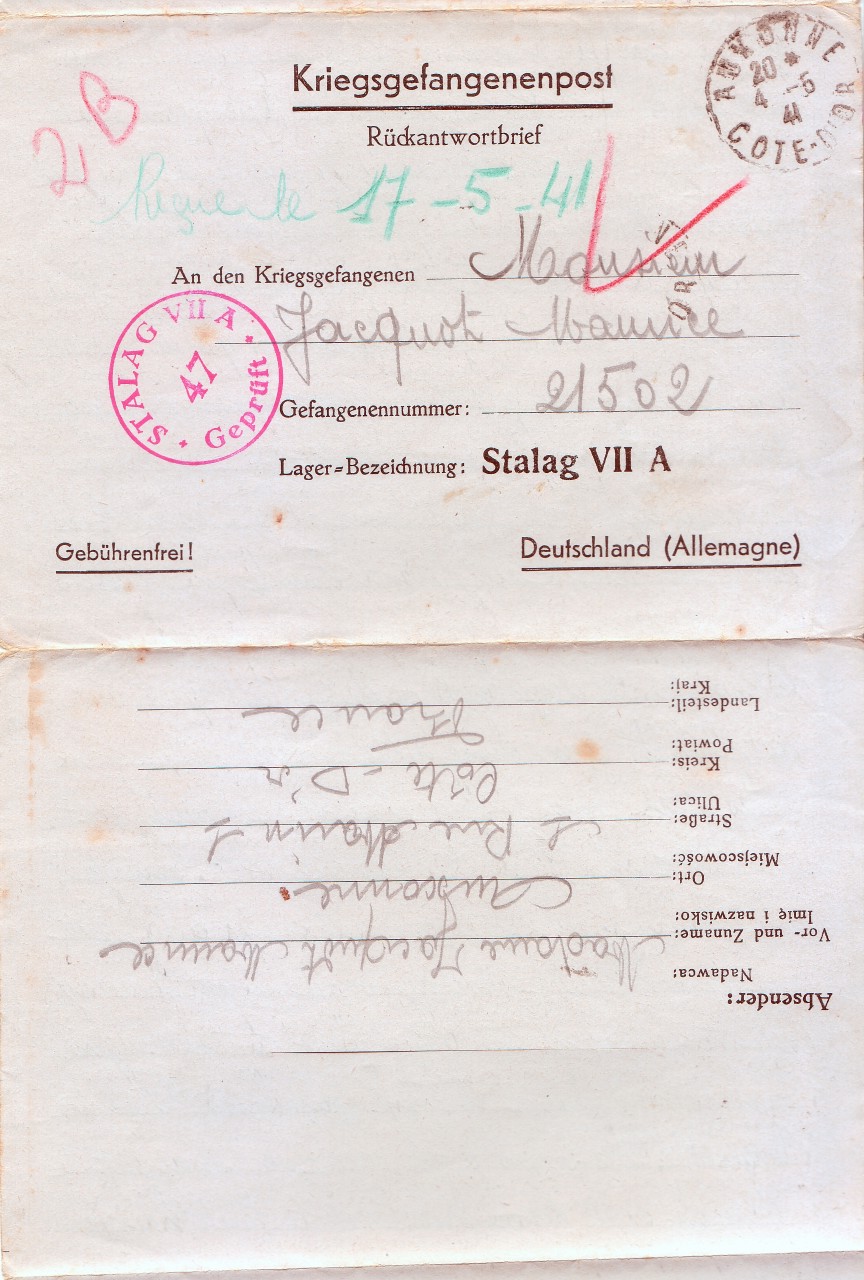 Kriegsgefangenenpost
Rückantwortbrief
AUXONNE
20 *
4 -5
41
COTE-D'OR
2B
17-5-41
An den Kriegsgefangenen Monsieur
Jacquot Maurice
Gefangenennummer: 21502
Lager-Bezeichnung: Stalag VII A
STALAG VII A
47
Geprüft
Gebührenfrei!
Deutschland (Allemagne)
Absender:
Nadawca:
Vor- und Zuname: Madame Jacquot Maurice
Imię i nazwisko:
Ort: Auxonne
Miejscowość:
Straße: Rue Marin
Ulica:
Kreis: Côte-D'or
Powiat:
Landesteil: France
Kraj: